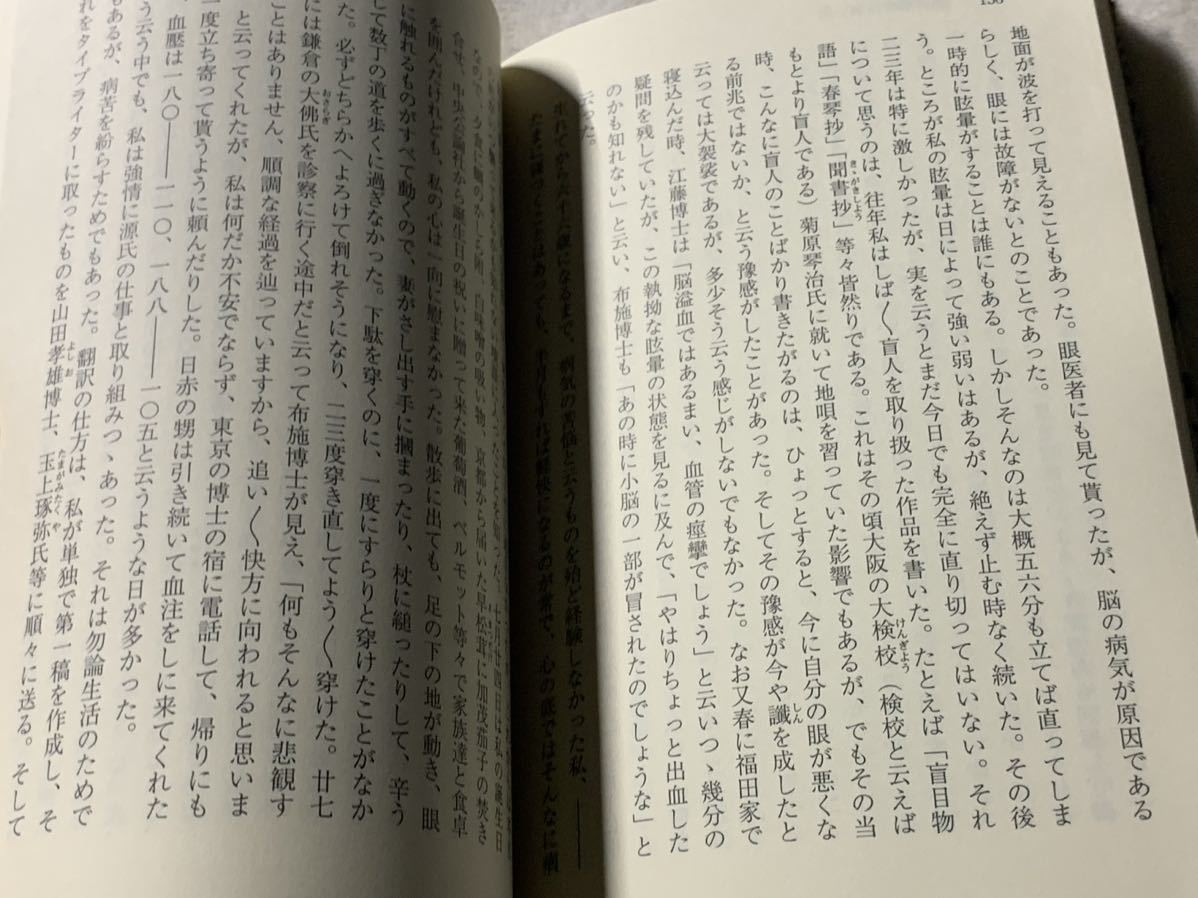 地面が波を打って見えることもあった。眼医者にも見て貰ったが、脳の病気が原因である
らしく、眼には故障がないとのことであった。
一時的に眩暈がすることは誰にもある。しかしそんなのは大概五六分も立てば直ってしま
う。ところが私の眩暈は日によって強い弱いはあるが、絶えず止む時なく続いた。その後
二三年は特に激しかったが、実を云うとまだ今日でも完全に直り切ってはいない。それ
について思うのは、往年私はしば〱盲人を取り扱った作品を書いた。たとえば「盲目物
語」「春琴抄」「聞書抄」等々皆然りである。これはその頃大阪の大検校（検校と云えば
もとより盲人である）菊原琴治氏に就いて地唄を習っていた影響でもあるが、でもその当
時、こんなに盲人のことばかり書きたがるのは、ひょっとすると、今に自分の眼が悪くな
る前兆ではないか、と云う豫感がしたことがあった。そしてその豫感が今や讖を成したと
云っては大袈裟であるが、多少そう云う感じがしないでもなかった。なお又春に福田家で
寝込んだ時、江藤博士は「脳溢血ではあるまい、血管の痙攣でしょう」と云いつゝ幾分の
疑問を残していたが、この執拗な眩暈の状態を見るに及んで、「やはりちょっと出血した
のかも知れない」と云い、布施博士も「あの時に小脳の一部が冒されたのでしょうな」と
云った。
生れてから六十六歳になるまで、病気の苦悩と云うものを殆ど経験しなかった私、――
七月廿四日は私の誕生日
なので、夕食に鯛のかしら附、白味噌の吸い物、京都から届いた早松茸に加茂茄子の焚き
合せ、中央公論社から誕生日の祝いに贈って来た葡萄酒、ベルモット等々で家族達と食卓
を囲んだけれども、私の心は一向に慰まなかった。散歩に出ても、足の下の地が動き、眼
に触れるものがすべて動くので、妻がさし出す手に摑まったり、杖に縋ったりして、辛う
して数丁の道を歩くに過ぎなかった。下駄を穿くのに、一度にすらりと穿けたことがなか
った。必ずどちらかへよろけて倒れそうになり、二三度穿き直してよう〱穿けた。廿七
には鎌倉の大佛氏を診察に行く途中だと云って布施博士が見え、「何もそんなに悲観す
ことはありません、順調な経過を辿っていますから、追い〱快方に向われると思いま
と云ってくれたが、私は何だか不安でならず、東京の博士の宿に電話して、帰りにも
一度立ち寄って貰うように頼んだりした。日赤の甥は引き続いて血注をしに来てくれた
血壓は一八〇――一一〇、一八八――一〇五と云うような日が多かった。
う云う中でも、私は強情に源氏の仕事と取り組みつゝあった。それは勿論生活のためで
もあるが、病苦を紛らすためでもあった。翻訳の仕方は、私が単独で第一稿を作成し、そ
れをタイプライターに取ったものを山田孝雄博士、玉上琢弥氏等に順々に送る。そして